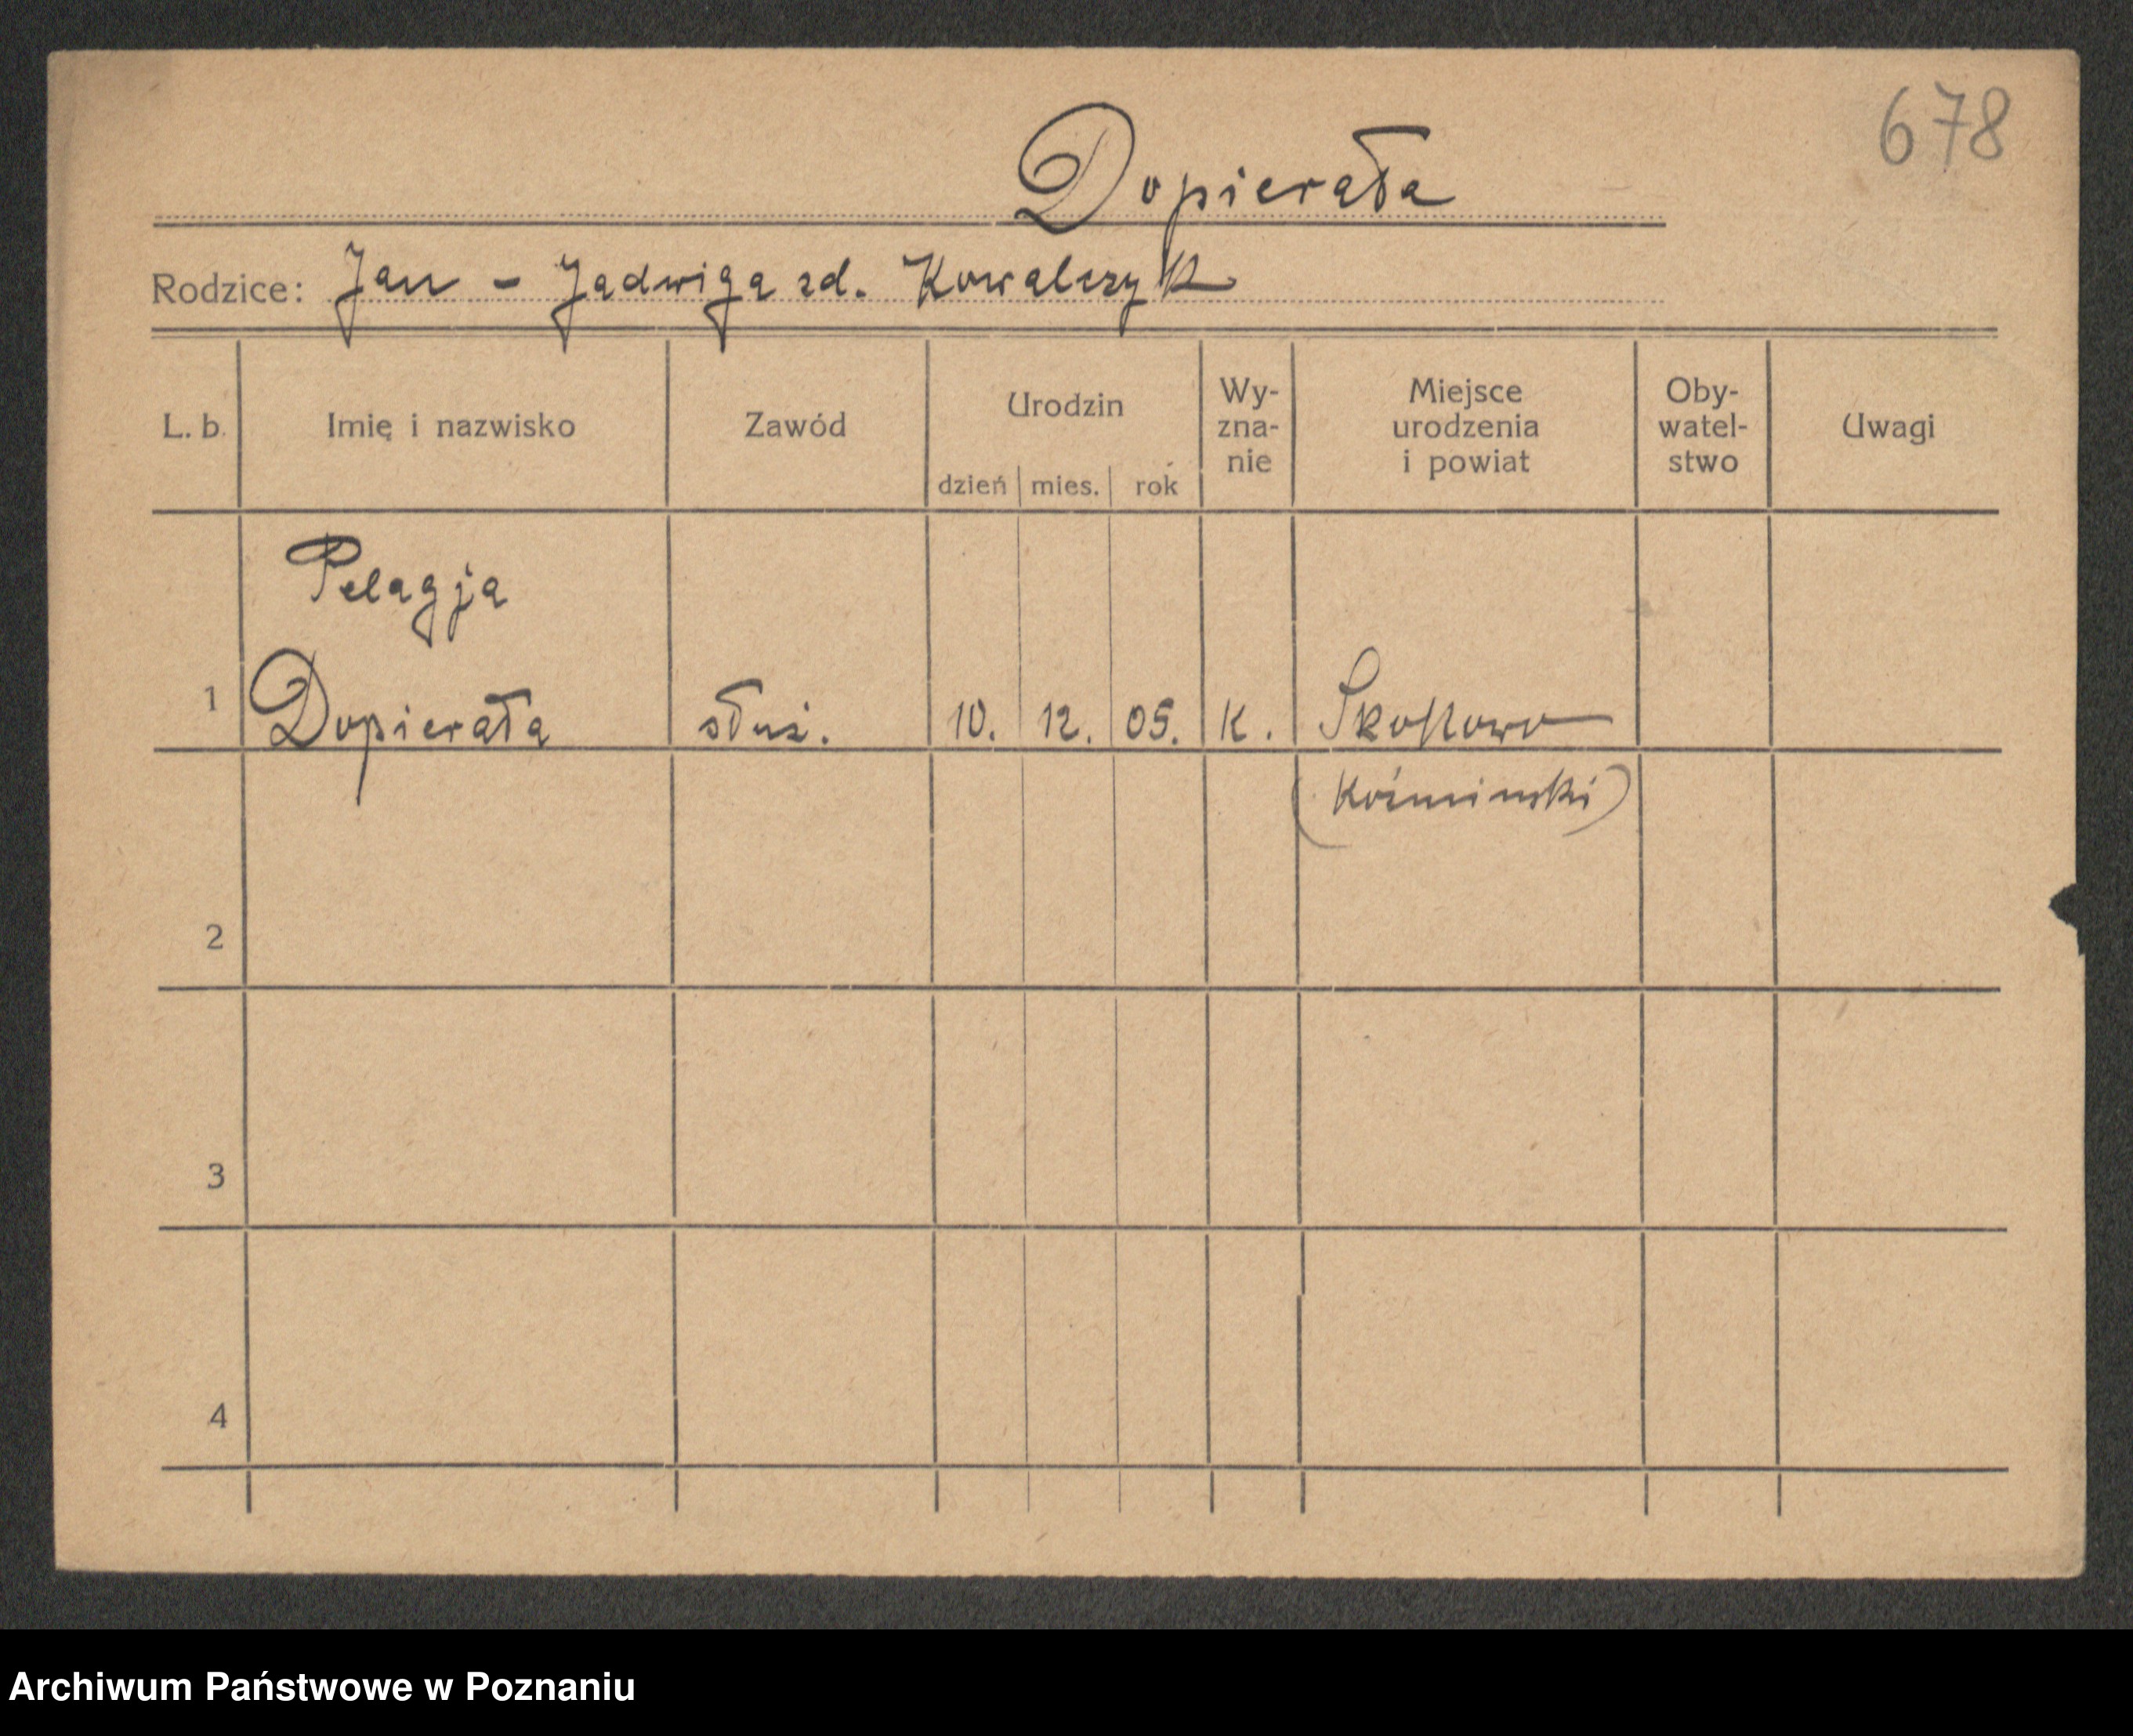 678
Dopierała
Rodzice: Jan - Jadwiga zd. Kowalczyk
L. b. Imię i nazwisko Zawód Urodzin dzień mies. rok Wy-zna-nie Miejsce urodzenia i powiat Oby-watel-stwo Uwagi
Pelagja
1 Dopierała służ. 10. 12. 05. K. Skokowo
(Koźmiński)
2
3
4
Archiwum Państwowe w Poznaniu